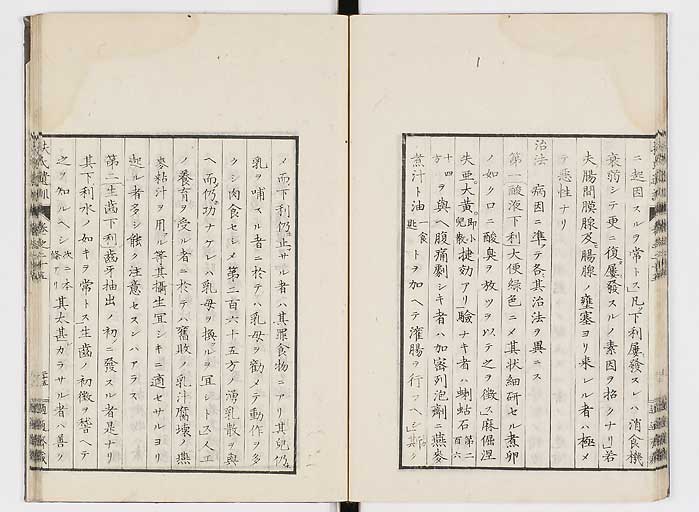 ニ起因スルヲ常トス」凡ソ下利屢發スレハ消食機
衰弱シテ更ニ復タ屢發スルノ素因ヲ招クナリ」若
夫腸間膜腺及ヒ腸腺ノ壅塞ヨリ来レル者ハ極メ
テ悪性ナリ
治法 病因ニ準テ各其治法ヲ異ニス
第一酸液下利大便緑色ニメ其状細研セル煮卵
ノ如クロニ酸臭ヲ放ツヲ以テ之ヲ徴ス麻倔涅
失亜大黄即小兒散捷効アリ驗ナキ者ハ蝲蛄石第二百六
十四方ヲ與ヘ腹痛劇シキ者ハ加密列泡劑ニ燕麥
煮汁ト油一食匙トヲ加ヘテ灌腸ヲ行フヘシ」斯ク
ノ而下利仍止サル者ハ其罪食物ニアリ其兒仍
乳ヲ哺スル者ニ於テハ乳母ヲ勸メテ動作ヲ多
クシ肉食セシメ第二百六十五方ノ湧乳散ヲ與
ヘ而仍功ナケレハ乳母ヲ換ルヲ宜シトス」人工
ノ養育ヲ受ル者ニ於テハ舊敗ノ乳汁腐壊ノ燕
麥粘汁ヲ用ル等其攝生宜シキニ適セサルヨリ
起ル者多シ能ク注意セスンハアラス
第二生齒下利齒牙抽出ノ初メニ發スル者是ナリ
其下利水ノ如キヲ常トス」生齒ノ初徴ヲ瞥ヘテ
之ヲ知ルヘシ次ニ本條アリ其太甚シカラサル者ハ善ク
扶氏遺訓 卷之二十五